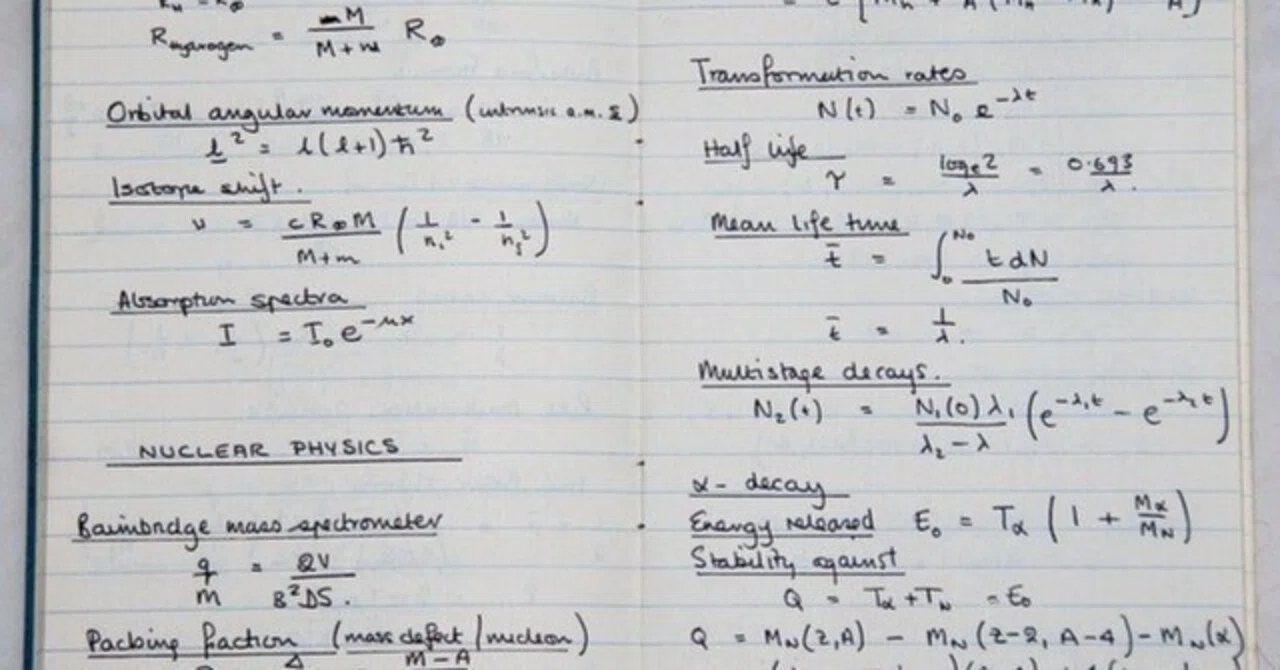 R_hydrogen = M/(M+m) R_∞
Orbital angular momentum (intrinsic a.m. s)
l² = l(l+1)ħ²
Isotope shift.
ν = cR_∞M/(M+m) (1/n_i² - 1/n_f²)
Absorption spectra
I = I₀e^(-μx)
NUCLEAR PHYSICS
Bainbridge mass spectrometer
q/m = 2V/(B²DS).
Packing fraction (mass defect/nucleon)
Δ M-A
Transformation rates
N(t) = N₀e^(-λt)
Half life
τ = logₑ2/λ = 0.693/λ.
Mean life time
t̄ = ∫₀^(N₀) t dN/N₀
t̄ = 1/λ.
Multistage decays.
N₂(t) = N₁(0)λ₁/(λ₂-λ) (e^(-λ₁t) - e^(-λ₂t))
α-decay
Energy released E₀ = T_α (1 + M_α/M_N)
Stability against
Q = T_α + T_N = E₀
Q = M_N(Z,A) - M_N(Z-2, A-4) - M_N(α)